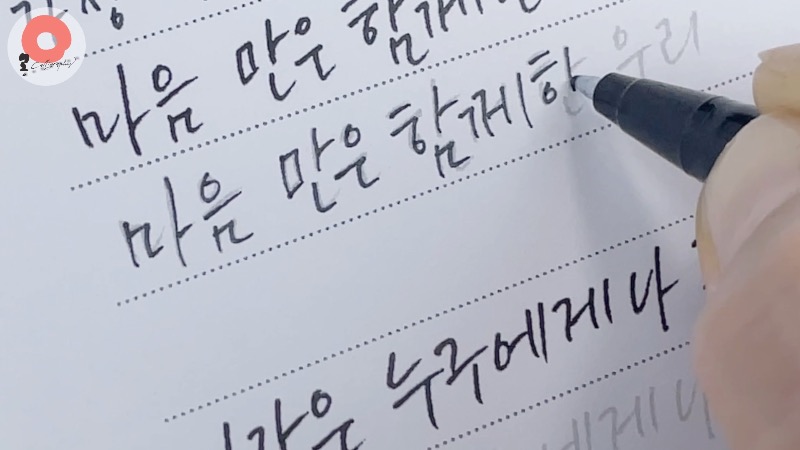 마음 만은 함께한
마음 만은 함께한 우리
누구에게나
에게나